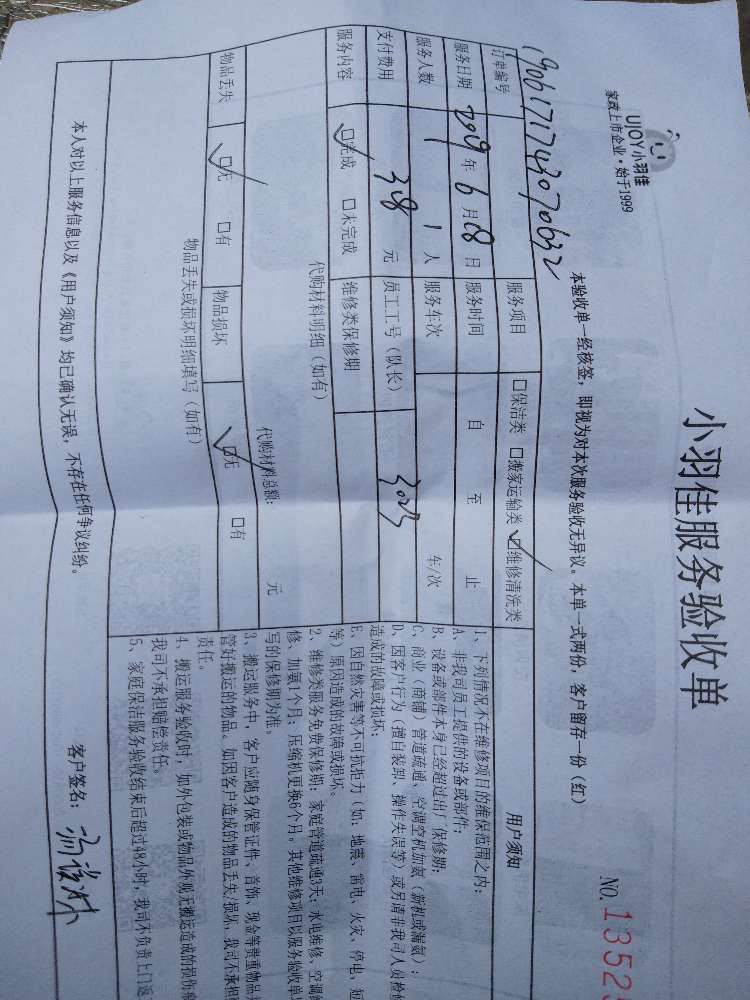 UJOY小羽佳
家政上市企业·始于1999
小羽佳服务验收单
NO.13523
本验收单一经核签，即视为对本次服务验收无异议。本单一式两份，客户留存一份（红）
订单编号 1906171743070632 服务项目 □保洁类 □搬家运输类 ☑维修清洗类
服务日期 2019年6月18日 服务时间 自 至 止
服务人数 1人 服务车次 车/次
支付费用 318元 员工工号（队长） 3023
服务内容 ☑完成 □未完成 维修类保修期
代购材料明细（如有）
代购材料总额： 元
物品丢失 ☑无 □有 物品损坏 ☑无 □有
物品丢失或损坏明细填写（如有）
用户须知
1、下列情况不在维修项目的维保范围之内：
A、非我司员工提供的设备或部件；
B、设备或部件本身已经超过出厂保修期；
C、商业（商铺）管道疏通、空调空机加氨（新机或漏氨）；
D、因客户行为（擅自装卸、操作失误等）或另请非我司人员检修
造成的故障或损坏；
E、因自然灾害等不可抗拒力（如：地震、雷电、火灾、停电、短
等）原因造成的故障或损坏。
2、维修类服务免费保修期：家庭管道疏通3天；水电维修、空调维
修、加氨1个月；压缩机更换6个月。其他维修项目以服务验收单填
写的保修期为准。
3、搬运服务中，客户应随身保管证件、首饰、现金等贵重物品并
管好搬运的物品。如因客户造成的物品丢失/损坏，我司不承担
责任。
4、搬运服务验收时，如外包装或物品外观无搬运造成的损伤痕
我司不承担赔偿责任。
5、家庭保洁服务验收结束后超过48小时，我司不负责上门返
本人对以上服务信息以及《用户须知》均已确认无误，不存在任何争议纠纷。
客户签名：